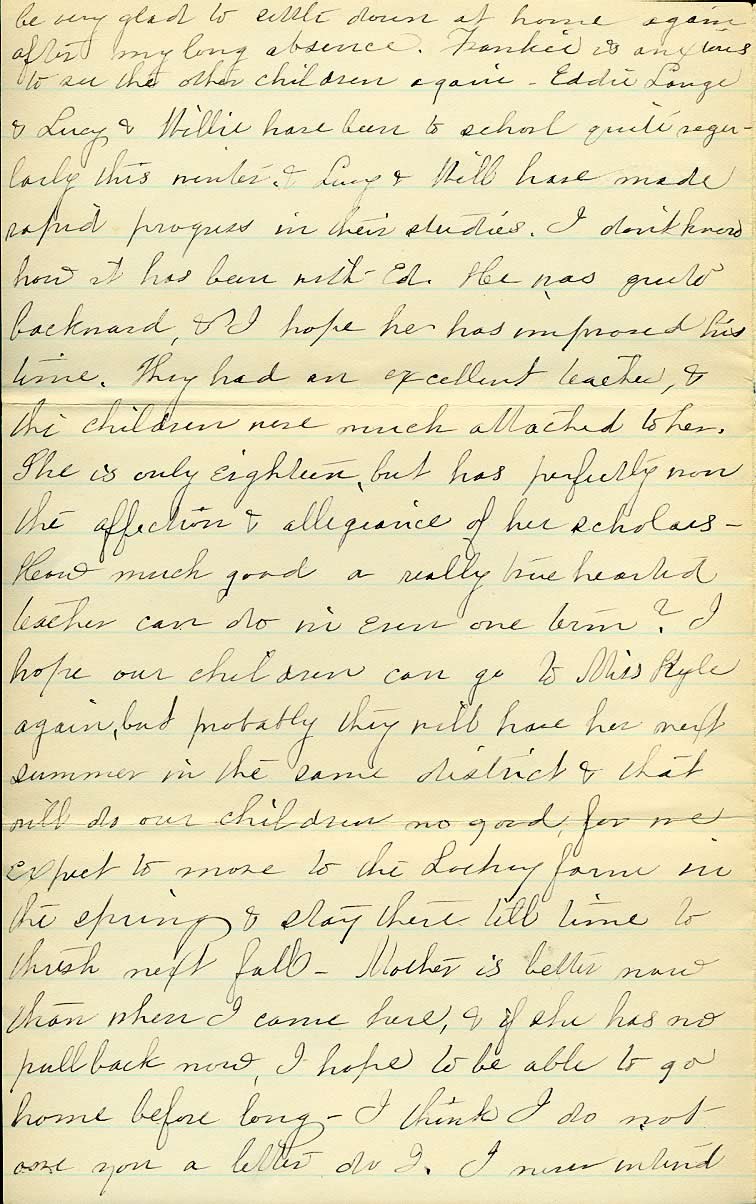 be very glad to settle down at home again
after my long absence. Frankie is anxious
to see the other children again - Eddie Lange
& Lucy & Willie have been to school quite regu-
larly this winter. & Lucy & Will have made
rapid progress in their studies. I don't know
how it has been with Ed. He was quite
backward, & I hope he has improved his
time. They had an excellent teacher, &
the children were much attached to her.
She is only eighteen, but has perfectly won
the affection & allegiance of her scholars -
How much good a really true hearted
teacher can do in even one term? I
hope our children can go to Miss Kyle
again, but probably they will have her next
summer in the same district & that
will do our children no good, for we
expect to move to the farm in
the spring & stay there till time to
thresh next fall - Mother is better now
than when I came here, & if she has no
pull back now, I hope to be able to go
home before long - I think I do not
owe you a letter do I. I never intend